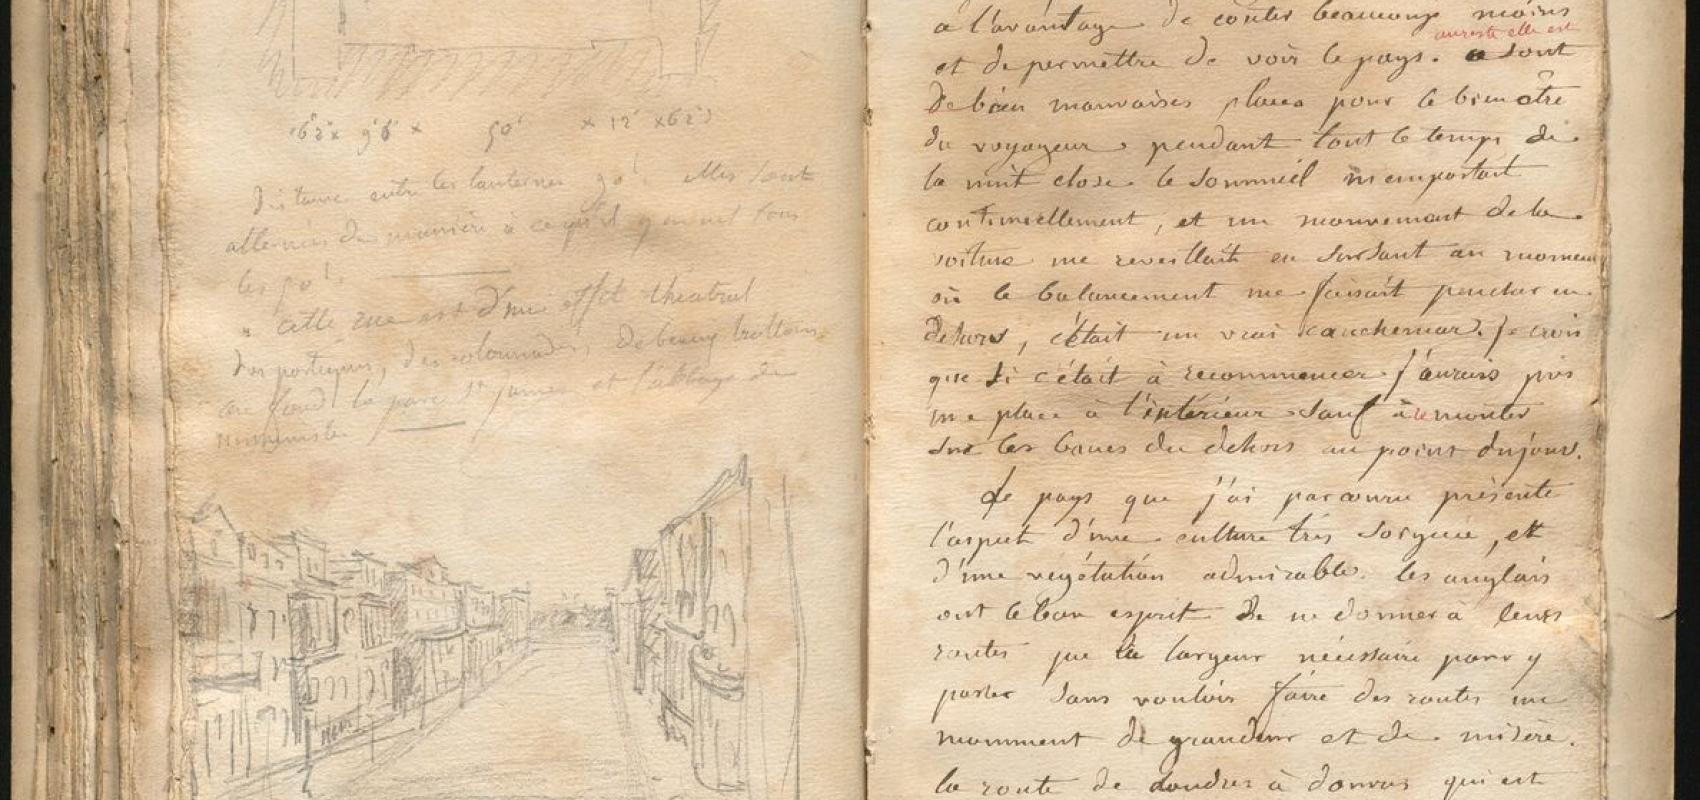 6'2" x 9'6" x 50' x 12' x 6'2"
Distance entre les lanternes 90' elles sont
alternées de manière à ce qu'il y en ait tous
les 50'.
cette rue est d'un effet theatral
des portiques, des colonnades, de beaux trottoirs,
au fond le parc St James et l'abbaye de
Westminster
a l'avantage de couter beaucoup moins
au reste elle est
et de permettre de voir le pays. ce sont
de bien mauvaises places pour le bien être
du voyageur, pendant tout le temps de
la nuit close le sommeil m'emportait
continuellement, et un mouvement de la
voiture me reveillait en sursaut au moment
où le balancement me faisait pencher en
dehors, c'était un vrai cauchemar. Je crois
que si c'était à recommencer j'aurais pris
une place à l'intérieur sauf à remonter
sur les bancs du dehors au point du jour.
Le pays que j'ai parcouru présente
l'aspect d'une culture très soignée, et
d'une végétation admirable. les anglais
ont le bon esprit de ne donner à leurs
routes que la largeur nécessaire pour y
passer sans vouloir faire des routes un
monument de grandeur et de misère.
la route de Londres à douvres qui est